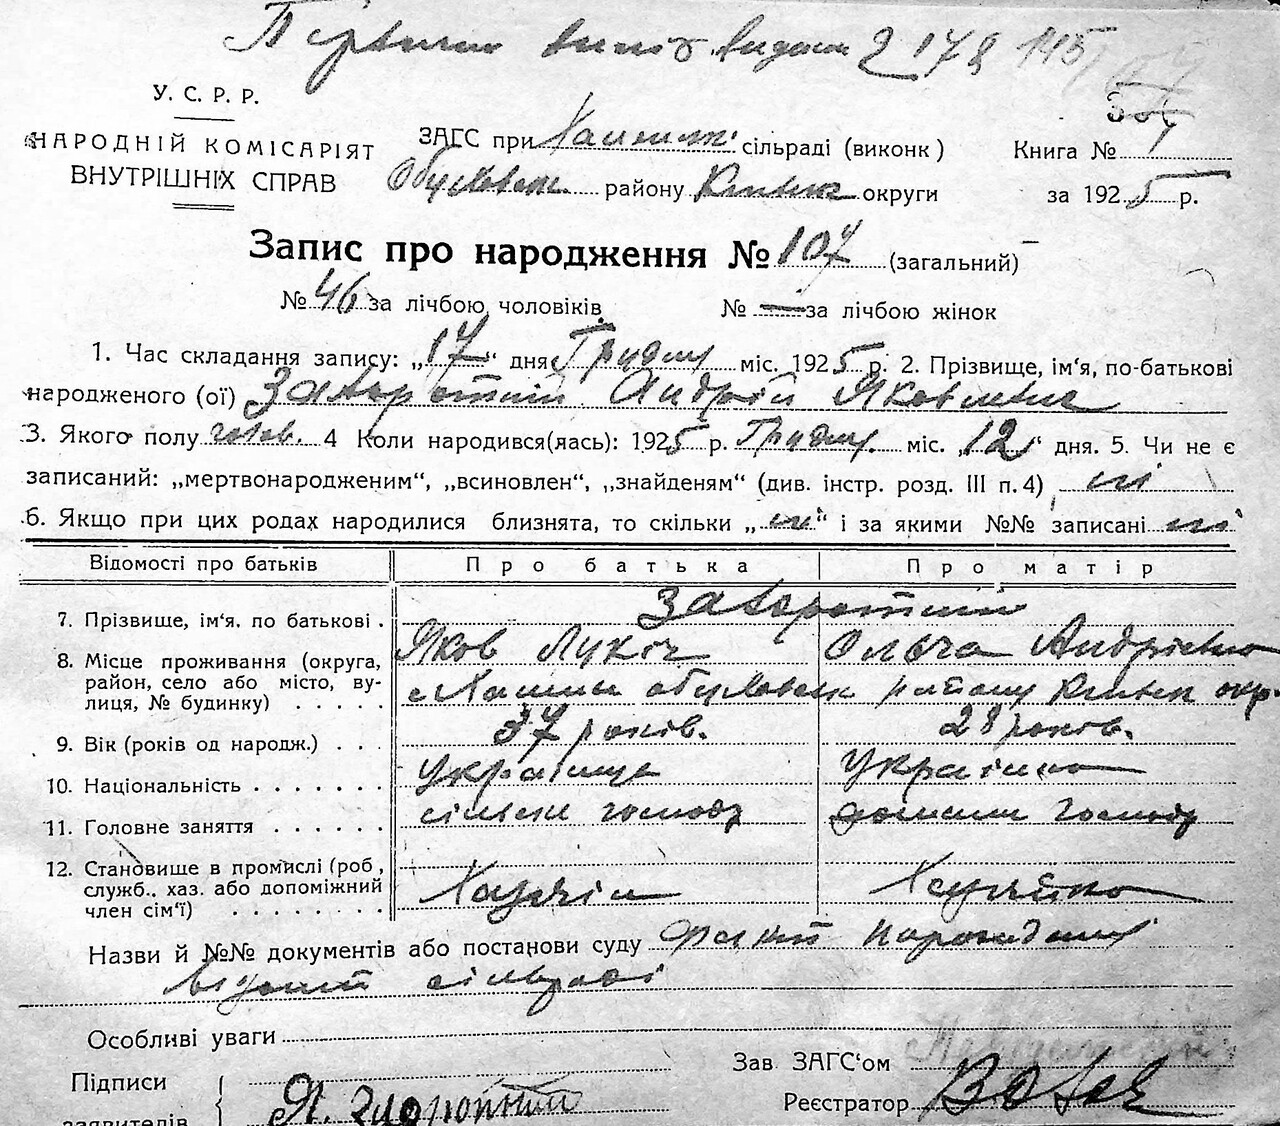 видани 2 17 8
У. С. Р. Р.
НАРОДНІЙ КОМІСАРІЯТ
ВНУТРІШНІХ СПРАВ
ЗАГС при сільраді (виконк)
району округи
Книга №
за 1925 р.
Запис про народження № 107 (загальний)
№ 46 за лічбою чоловіків № — за лічбою жінок
1. Час складання запису: „17“ дня Грудня міс. 1925 р. 2. Прізвище, ім‘я, по-батькові
народженого (ої) Андрій Яковлевич
3. Якого полу чолов. 4 Коли народився(лась): 1925 р. Грудня міс. „12“ дня. 5. Чи не є
записаний: „мертвонародженим“, „всиновлен“, „знайденям“ (див. інстр. розд. III п. 4) ні
6. Якщо при цих родах народилися близнята, то скільки „ні“ і за якими №№ записані ні
Відомості про батьків Про батька Про матір
7. Прізвище, ім‘я, по батькові .
Яков Лукіч Ольга Андріевна
8. Місце проживання (округа, район, село або місто, вулиця, № будинку) . . . . . району
9. Вік (років од народж.) . . . 37 років. 28 років.
10. Національність . . . . . . . українець українка
11. Головне заняття . . . . . . сільськ господ домашн господ
12. Становище в промислі (роб, служб., хаз. або допоміжний член сім‘ї) . . . . . . . Хазяїн Хазяйка
Назви й №№ документів або постанови суду факт народження
відомий сільраді
Особливі уваги
Зав ЗАГС‘ом
Підписи
заявителів
Реєстратор